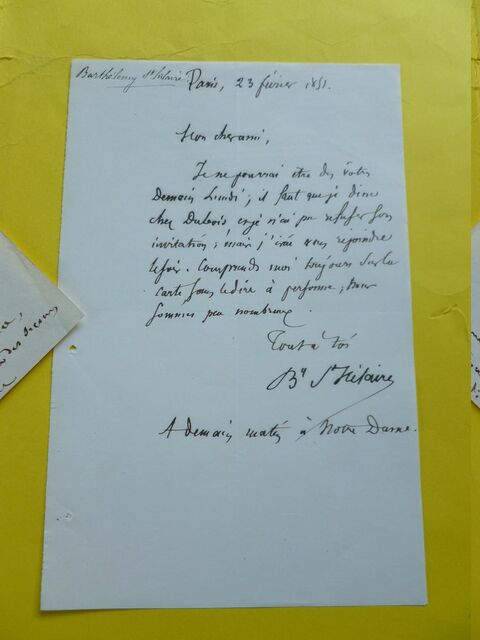 Barthélemy St hilaire
Paris, 23 février 1851.
Mon cher ami,
Je ne pourrai être des vôtres
Demain Lundi; il faut que je dîne
chez Dubois et je n'ai pu refuser son
invitation; mais j'irai vous rejoindre
le soir. Comprends moi toujours sur la
carte sans le dire à personne;
sommes peu nombreux.
Tout à toi
By St Hilaire
A demain matin à Notre Dame.